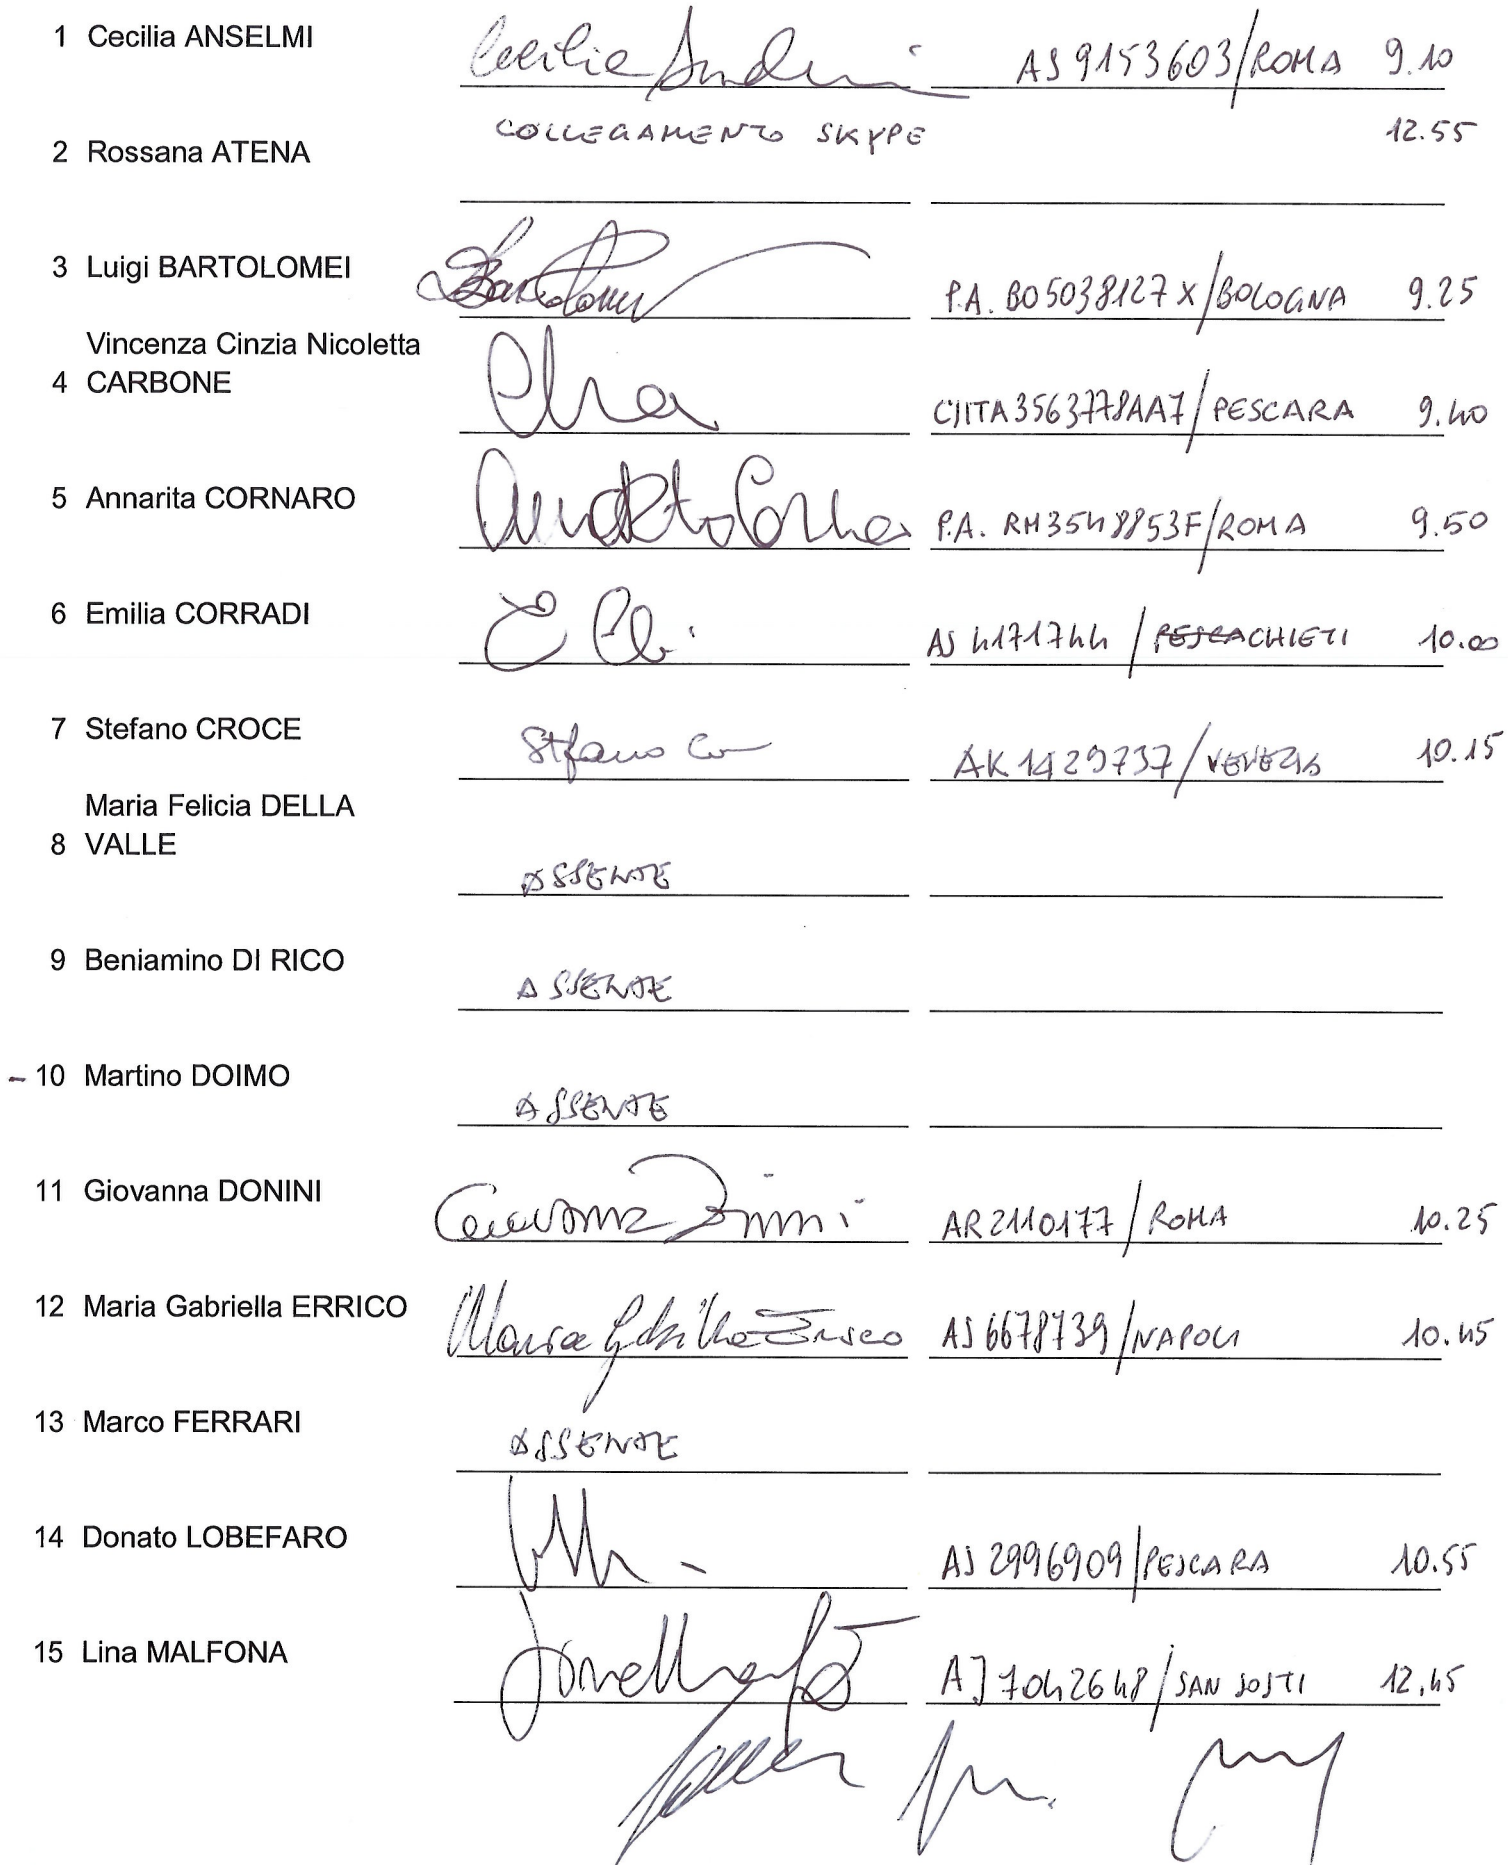 1 Cecilia ANSELMI Cecilia Anselmi AS 9153603/ROMA 9.10
COLLEGAMENTO SKYPE 12.55
2 Rossana ATENA
3 Luigi BARTOLOMEI P.A. BO5038127X/BOLOGNA 9.25
Vincenza Cinzia Nicoletta
4 CARBONE 9.40
/PESCARA
5 Annarita CORNARO P.A. RM3548853F/ROMA 9.50
6 Emilia CORRADI AS 4171744 / CHIETI 10.00
7 Stefano CROCE Stefano AK 1429737/VENEZIA 10.15
Maria Felicia DELLA
8 VALLE ASSENTE
9 Beniamino DI RICO ASSENTE
- 10 Martino DOIMO ASSENTE
11 Giovanna DONINI AR2110177/ROMA 10.25
12 Maria Gabriella ERRICO Maria Gabriella Errico AS 6678739/NAPOLI 10.45
13 Marco FERRARI ASSENTE
14 Donato LOBEFARO AS 2996909/PESCARA 10.55
15 Lina MALFONA 7042648/SAN SOSTI 12.45